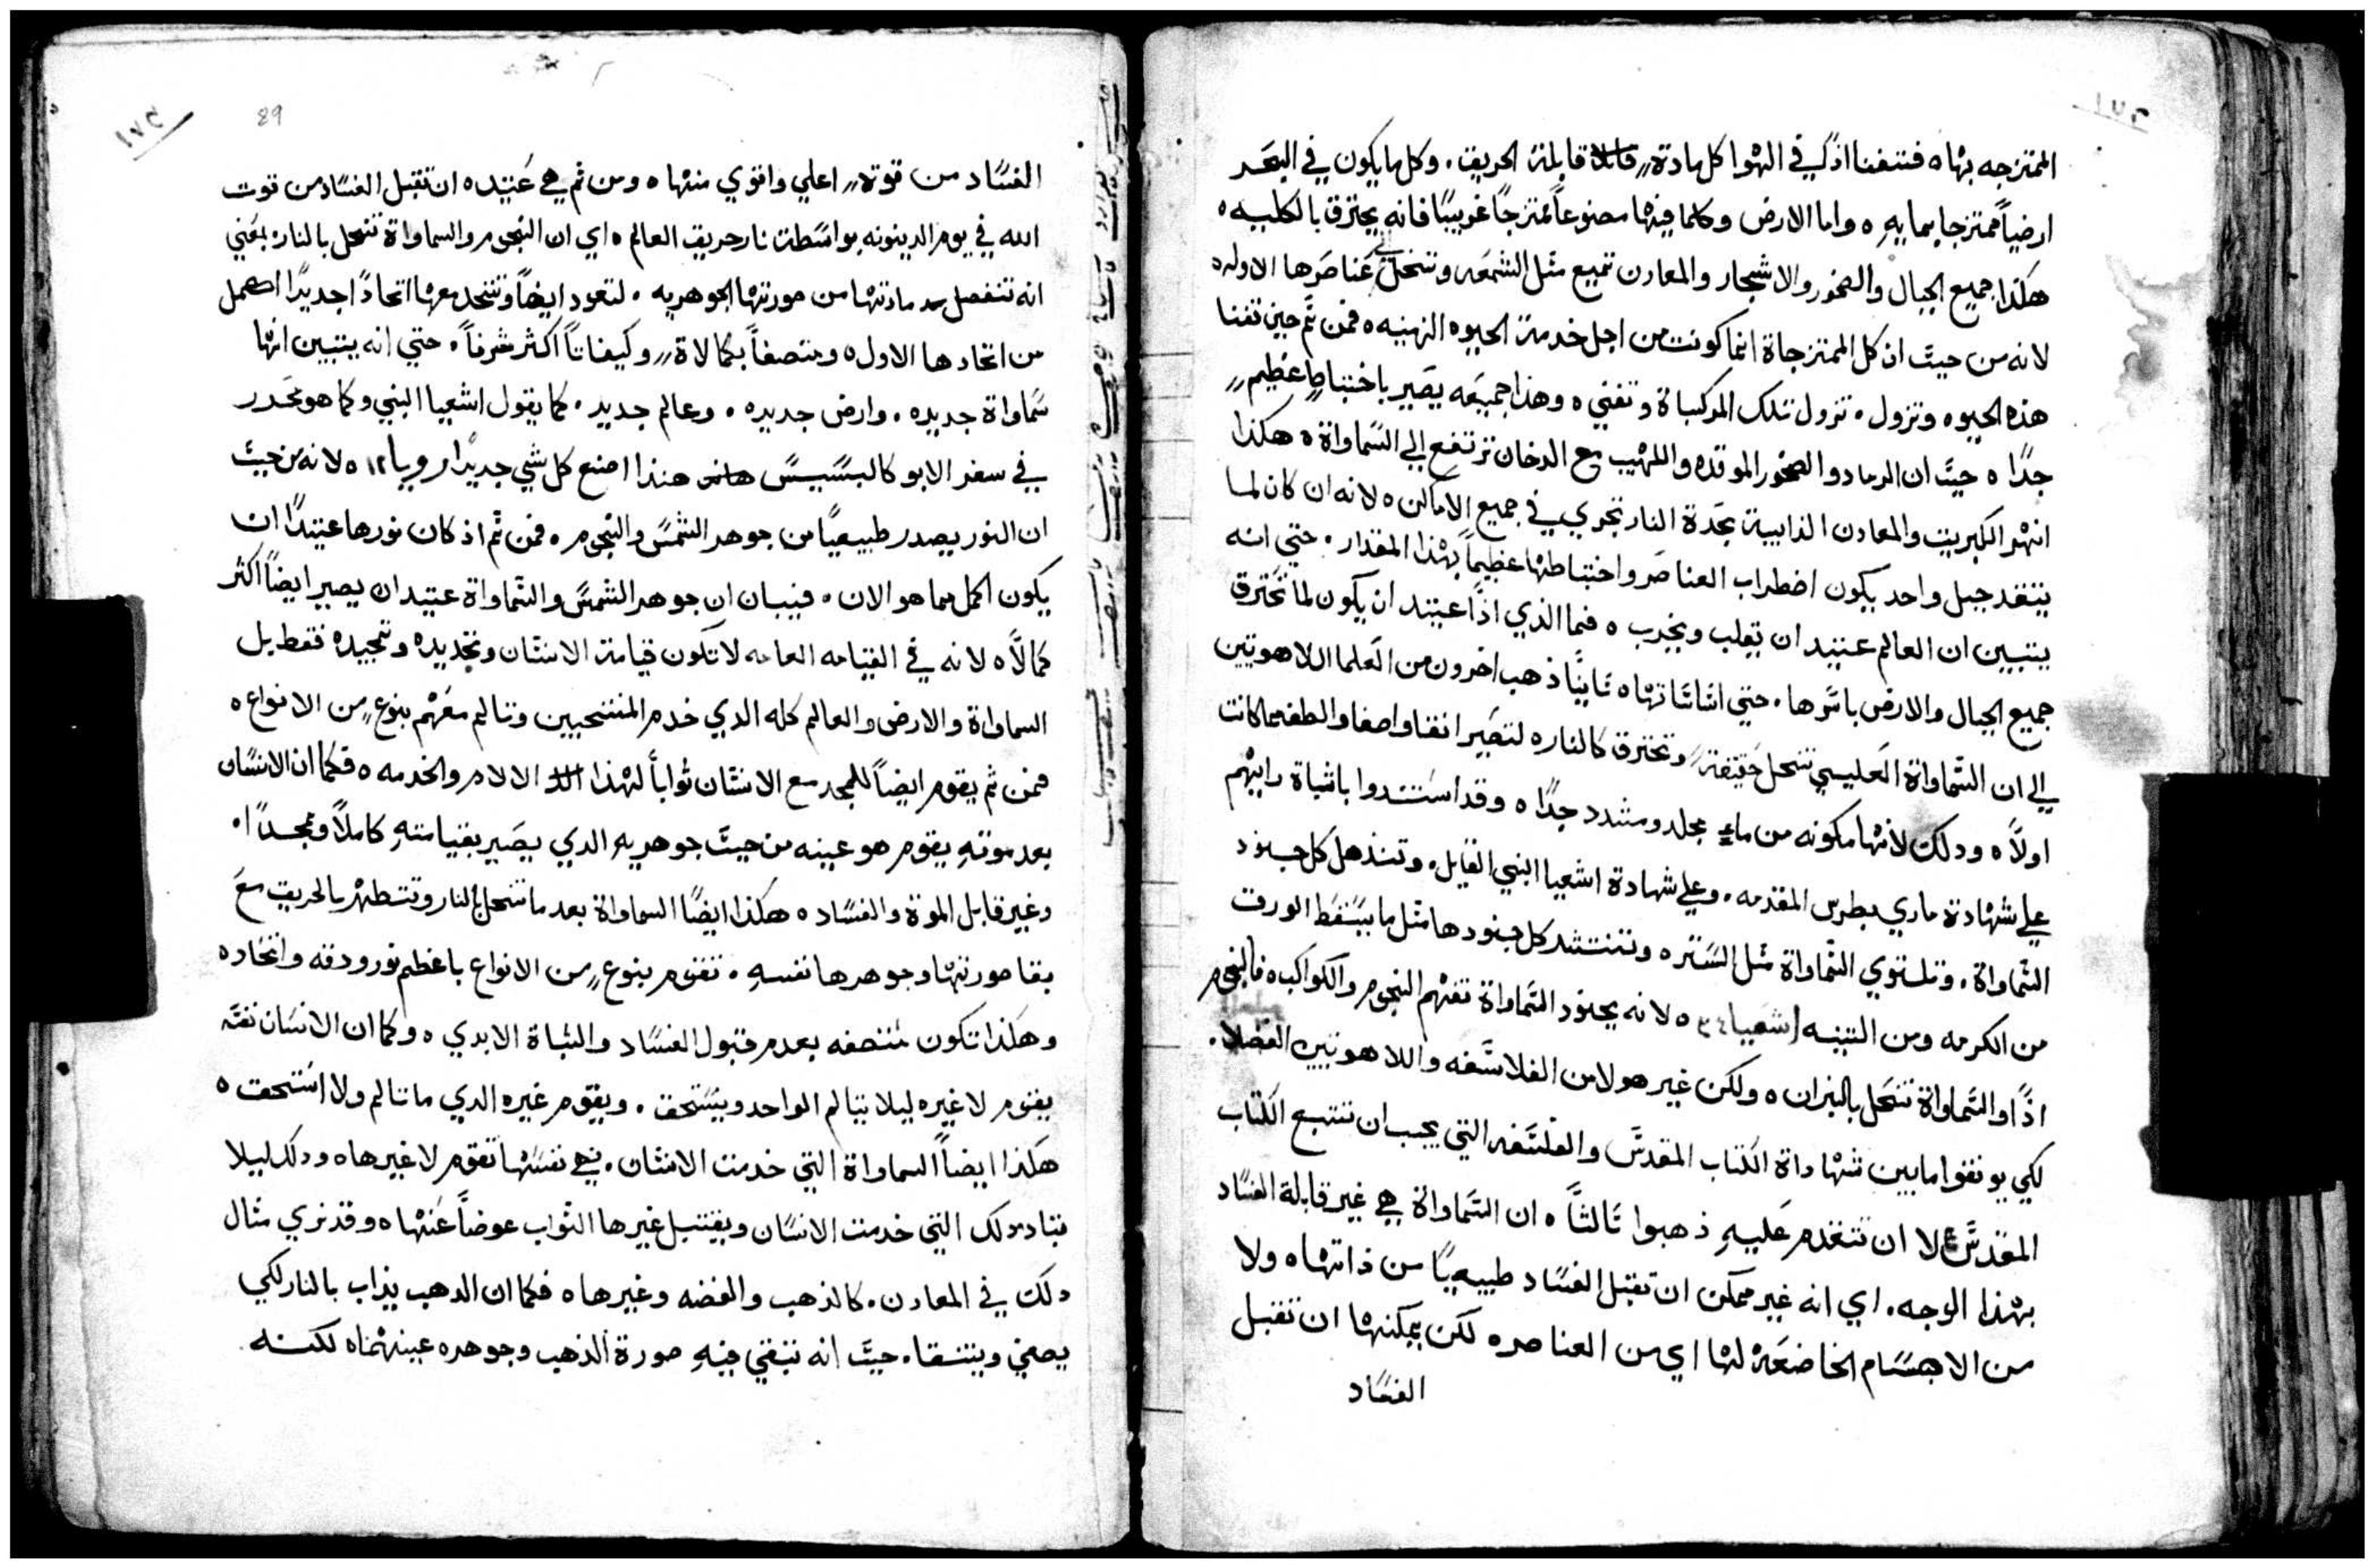 الممتزجه بها ه فتفنا اذًا في الهوا كل مادةٍ قابلة الحريق . وكلما يكون في البحر
ارضياً ممتزجا بمايهِ ه واما الارض وكلما فيها مصنوعاً ممتزجاً غريبًا فانه يحترق بالكليه ه
هكذا جميع الجبال والصخور والاشجار والمعادن تميع مثل الشمعه وتنحل الي عناصرها الاوله ه
لانه من حيث ان كل الممتزجاة انما كونت من اجل خدمة الحيوه الزمنيه ه فمن ثم حين تفنا
هذه الحيوه وتزول . تزول تلك المركباة وتفني ه وهذا جميعه يصير باختباطٍ عظيمٍ
جدًا ه حيث ان الرماد والصخور الموقده واللهيب مع الدخان ترتفع الي السماواة ه هكذا
انهر الكبريت والمعادن الذايبة بحدة النار تجري في جميع الاماكن ه لانه ان كان لما
يتقد جبل واحد يكون اضطراب العناصر واختباطها عظيماً بهذا المقدار . حتي انه
يتبين ان العالم عتيد ان يقلب ويخرب ه فما الذي اذًا عتيد ان يكون لما تحترق
جميع الجبال والارض باسرها . حتي اساساتها ه ثانيًا ذهب اخرون من العلما اللاهوتيين
الي ان السماواة العليسي تنحل حقيقةً وتحترق كالنار ه لتصير انقا واصفا والطف مما كانت
اولاً ه ودلك لانها مكونه من ماءٍ مجلد ومشدد جدًا ه وقد استندوا باثباة رايهم
علي شهادة ماري بطرس المقدمه . وعلي شهادة اشعيا النبي القايل . وتنذهل كل جنود
السماواة . وتلستوي السماواة مثل السفر ه وتنتثر كل جنودها مثل ما يسقط الورق
من الكرمه ومن التينه اشعيا ٣٤ ه لانه بجنود السماواة تفهم النجوم والكواكب ه فالنجوم
اذًا والسماواة تنحل بالنيران ه ولكن غير هولا من الفلاسفه واللاهوتيين الفضلا .
لكي يوفقوا مابين شهاداة الكتاب المقدس والفلسفه التي يجب ان تتبع الكتاب
المقدس لا ان تتقدم عليهِ ذهبوا ثالثاً ه ان السماواة هي غير قابلة الفساد
بهذا الوجه . اي انه غير ممكن ان تقبل الفساد طبيعيًا من ذاتها ه ولا
من الاجسام الخاضعه لها اي من العناصر ه لكن يمكنها ان تقبل
الفساد
89
١٧٥
الفساد من قوةٍ اعلي واقوي منها ه ومن ثم هي عتيده ان تقبل الفساد من قوت
الله في يوم الدينونه بواسطة نار حريق العالم ه اي ان النجوم والسماواة تنحل بالنار . بمعني
انه تنفصل مادتها من صورتها الجوهريه . لتعود ايضاً وتتحد معها اتحادًا جديدًا اكمل
من اتحادها الاول ه ومتصفاً بكمالاةٍ وكيفاتاً اكثر شرفاً . حتي انه يتبين انها
سماواة جديده . وارض جديده . وعالم جديد . كما يقول اشعيا النبي وكما هو محرر
في سفر الابوكالبسيس هنذا اصنع كل شي جديدًا رويا ١٢ ه لانه من حيث
ان النور يصدر طبيعيًا من جوهر الشمس والنجوم . فمن ثم اذ كان نورها عتيدًا ان
يكون اكمل مما هو الان . فيبان ان جوهر الشمس والسماواة عتيد ان يصير ايضاً اكثر
كمالاً ه لانه في القيامه العامه لا تكون قيامة الانسان وتجديده وتمجيده فقط بل
السماواة والارض والعالم كله الدي خدم المنتخبين وتالم معهم بنوعٍ من الانواع ه
فمن ثم يقوم ايضاً للمجد مع الانسان ثواباً لهذا الالام والخدمه ه فكما ان الانسان
بعد موتهِ يقوم هو عينه من حيث جوهريهِ الدي يصير بقيامتهِ كاملاً وممجدًا .
وغير قابل الموة والفساد ه هكذا ايضًا السماواة بعد ما تنحل بالنار وتتطهر بالحريق مع
بقا صورتها وجوهرها نفسهِ . تقوم بنوعٍ من الانواع باعظم نور ودقه واتحاد ه
وهكذا تكون متصفه بعدم قبول الفساد والثباة الابدي ه وكما ان الانسان نفسه
يقوم لا غيره ليلا يتالم الواحد ويستحق . ويقوم غيره الدي ما تالم ولا استحق ه
هكذا ايضاً السماواة التي خدمت الانسان . فهي نفسها تقوم لا غيرها ه ودلك ليلا
تباد تلك التي خدمت الانسان ويقتبل غيرها الثواب عوضاً عنها ه وقد نري مثال
دلك في المعادن . كالذهب والفضه وغيرها ه فكما ان الدهب يذاب بالنار لكي
يصفي ويتنقا . حيث انه تبقي فيهِ صورة الذهب وجوهره عينهما ه لكنه